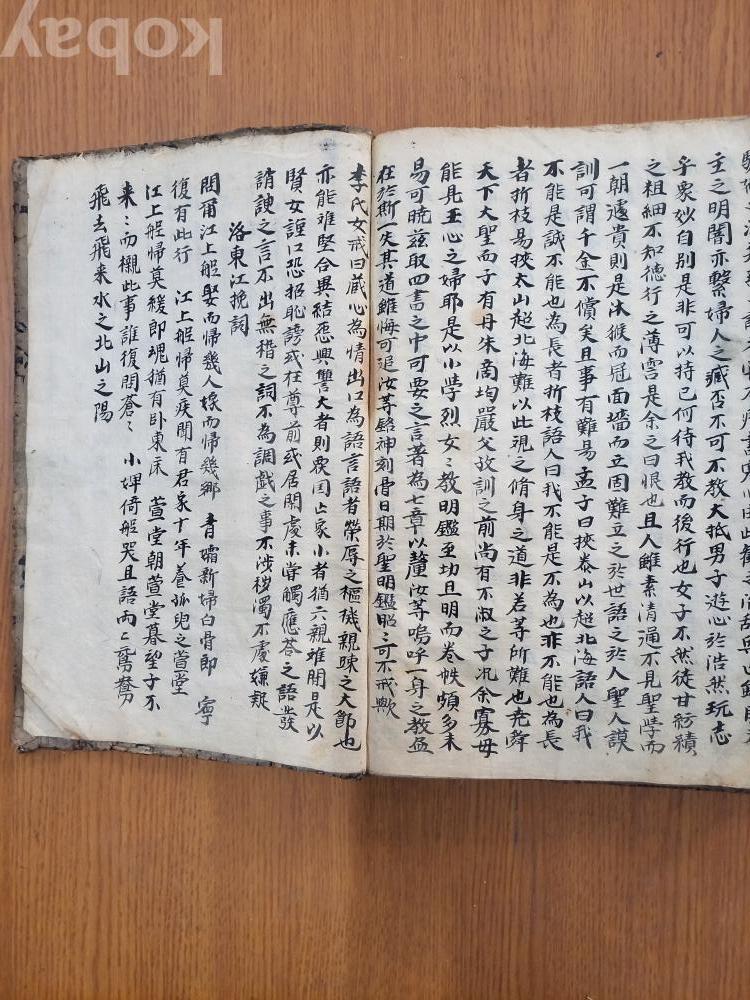 kobay
主之明闇亦繫婦人之臧否不可不教大抵男子遊心於浩然玩志
乎衆妙自別是非可以持己何待我教而後行也女子不然徒甘紡績
之粗細不知德行之薄雲是余之曰恨也且人雖素清通不見聖學而
一朝遽貴則是沐猴而冠面墻而立固難立之於世語之於人聖人謨
訓可謂千金不償矣且事有難易孟子曰挾泰山以超北海語人曰我
不能是誠不能也為長者折枝語人曰我不能是不為也非不能也為長
者折枝易挾太山超北海難以此視之脩身之道非若等所難也堯舜
天下大聖而子有丹朱商均嚴父孜訓之前尚有不淑之子況余寡母
能見王心之婦耶是以小學烈女之教明鑑至切且明而卷帙頗多未
易可曉玆取四書之中可要之言著為七章以釐汝等嗚呼一身之教益
在於斯一失其道雖悔可追汝等銘神刻骨日期於聖明鑑昭昭可不戒歟
李氏女戒曰藏心為情出口為語言語者榮辱之樞機親踈之大節也
亦能難堅合異結怨興讐大者則覆国亡家小者猶六親離間是以
賢女謹口恐招恥謗或在尊前或居閑處未嘗觸應答之語發
諂諛之言不出無稽之詞不為調戲之事不涉穢濁不處嫌疑
洛東江挽詞
問爾江上船娶而歸幾人嫁而歸幾鄉 青孀新婦白骨郎 寧
復有此行 江上船歸莫疾聞有君家十年養孤兒之萱堂
江上船歸莫緩郎魂猶有卧東床 萱堂朝萱堂暮望子不
来〻而櫬此事誰復問蒼〻 小婢倚船哭且語兩〻鴛鴦
飛去飛来水之北山之陽